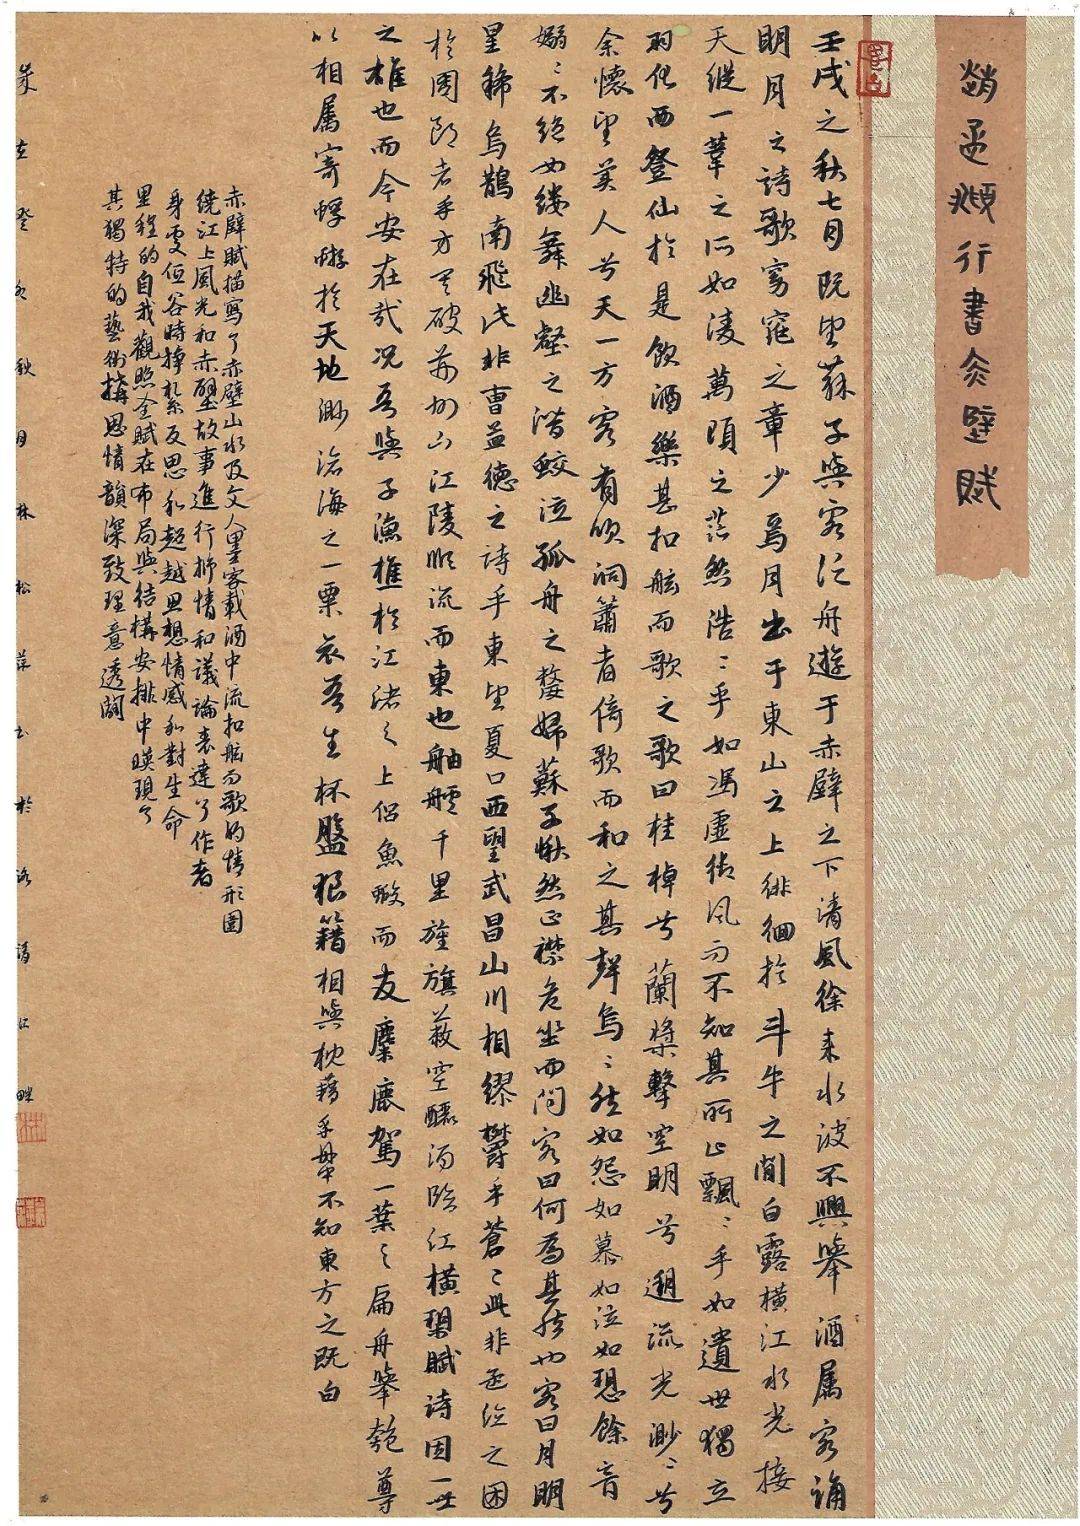 趙孟頫行書赤壁賦
壬戌之秋七月既望蘇子與客泛舟遊于赤壁之下清風徐来水波不興舉酒属客誦
明月之詩歌窈窕之章少焉月出于東山之上徘徊於斗牛之間白露橫江水光接
天縱一葦之所如凌萬頃之茫然浩〻乎如馮虛御風而不知其所止飄〻乎如遺世獨立
羽化而登仙於是飲酒樂甚扣舷而歌之歌曰桂棹兮蘭槳擊空明兮遡流光渺〻兮
余懷望美人兮天一方客有吹洞簫者倚歌而和之其聲烏〻然如怨如慕如泣如愬餘音
嫋〻不絕如縷舞幽壑之潛蛟泣孤舟之嫠婦蘇子愀然正襟危坐而问客曰何為其然也客曰月明
星稀烏鵲南飛此非曹孟德之詩乎東望夏口西望武昌山川相繆欝乎蒼〻此非孟德之困
於周郎者乎方其破荊州下江陵順流而東也舳艫千里旌旗蔽空釃酒臨江橫槊賦詩固一世
之雄也而今安在哉况吾與子漁樵於江渚之上侶魚蝦而友麋鹿駕一葉之扁舟舉匏尊
以相属寄蜉蝣於天地渺滄海之一粟哀吾生杯盤狼籍相與枕藉乎舟中不知東方之既白
赤壁賦描寫了赤壁山水及文人墨客載酒中流扣舷而歌的情形圍
繞江上風光和赤壁故事進行抒情和議論表達了作者
身處低谷時掙紮反思和超越思想情感和對生命
里程的自我觀照全賦在布局與結構安排中暎現了
其獨特的藝術搆思情韻深致理意透闢
歲在癸卯秋月林松萍書於洛清江畔